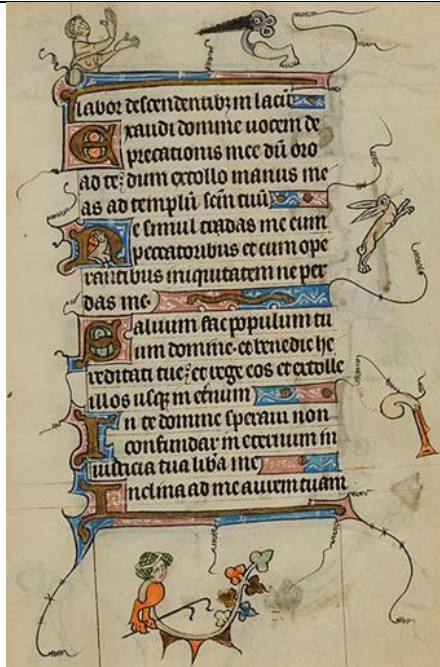 labor descendentibȝ in lacū
Exaudi domine uocem de
precationis mee dū oro
ad te? dum extollo manus me
as ad templū scm̄ tuū
Ne simul tradas me cum
peccatoribus et cum ope
rantibus iniquitatem ne per
das me
Saluum fac populum tu
um domine et benedic he
reditati tue? et rege eos et extolle
illos usqȝ in et̄num
In te domine speraui non
confundar in eternum in
iusticia tua lib̄a me
Inclina ad me aurem tuam